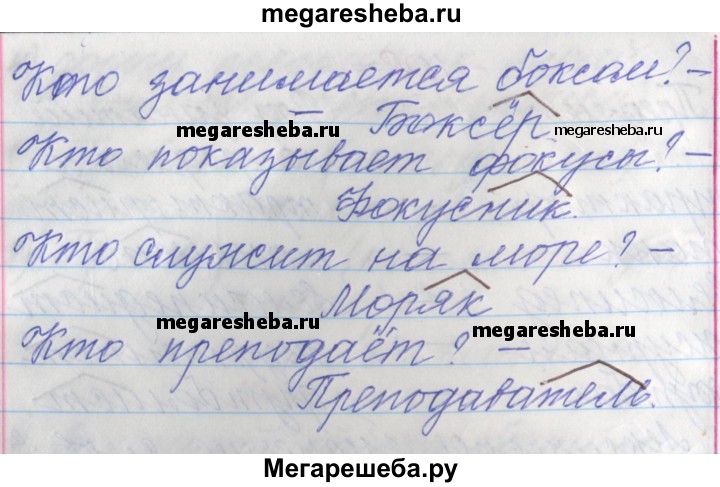 megaresheba.ru
Кто занимается боксом? –
– Боксёр
megaresheba.ru
megaresheba.ru
Кто показывает фокусы? –
Фокусник.
Кто служит на море? –
Моряк
megaresheba.ru
megaresheba.ru
Кто преподаёт? –
Преподаватель.
Мегарешеба.ру